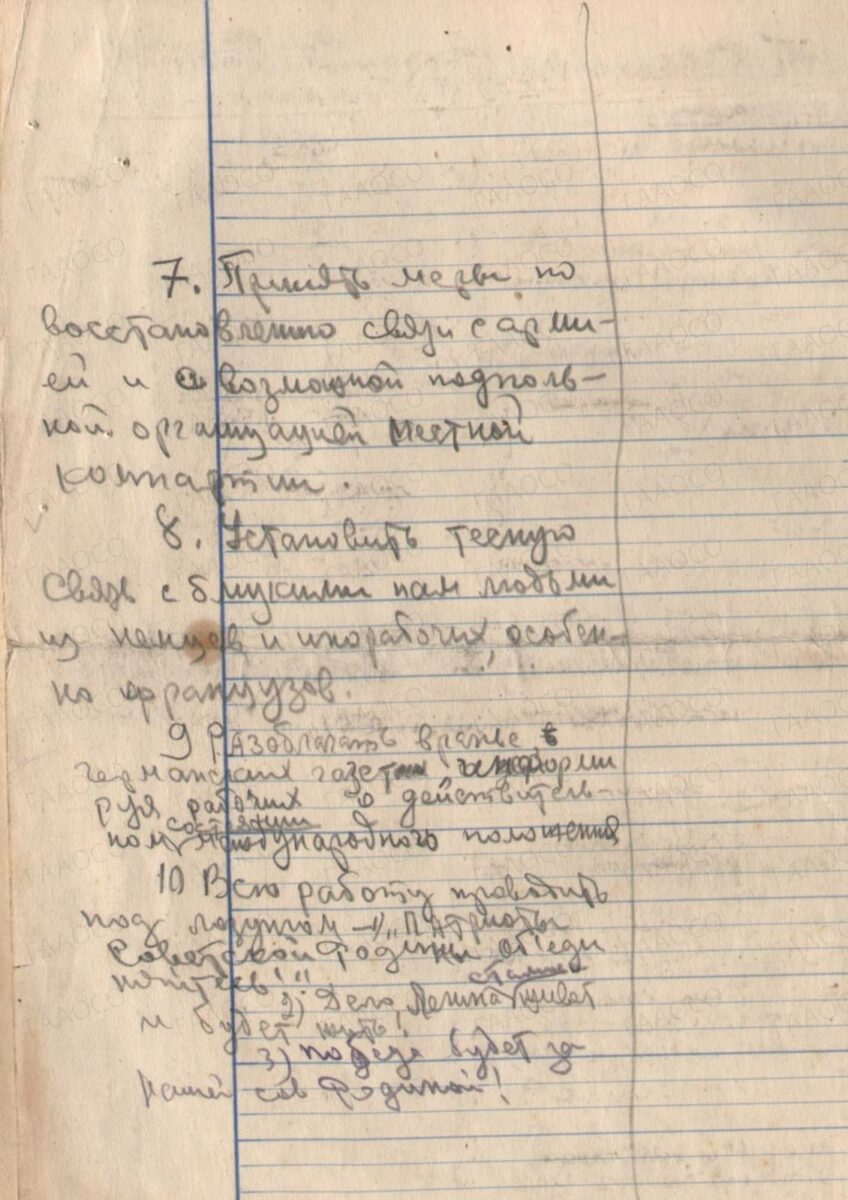 7. Принять меры по
восстановлению связи с арми-
ей и с возможной подполь-
ной организацией местной
компартии.
8. Установить тесную
связь с близкими нам людьми
из немцев и инорабочих, особен-
но французов.
9 Разоблачать вранье в
германских газетах информи
руя рабочих о действитель-
ном состоянии международного положения
10 Всю работу проводить
под лозунгом – 1) „Патриоты
Советской Родины об'еди
няйтесь!"
2) Дело Ленина Сталина живет
и будет жить!
3) Победа будет за
нашей сов Родиной!